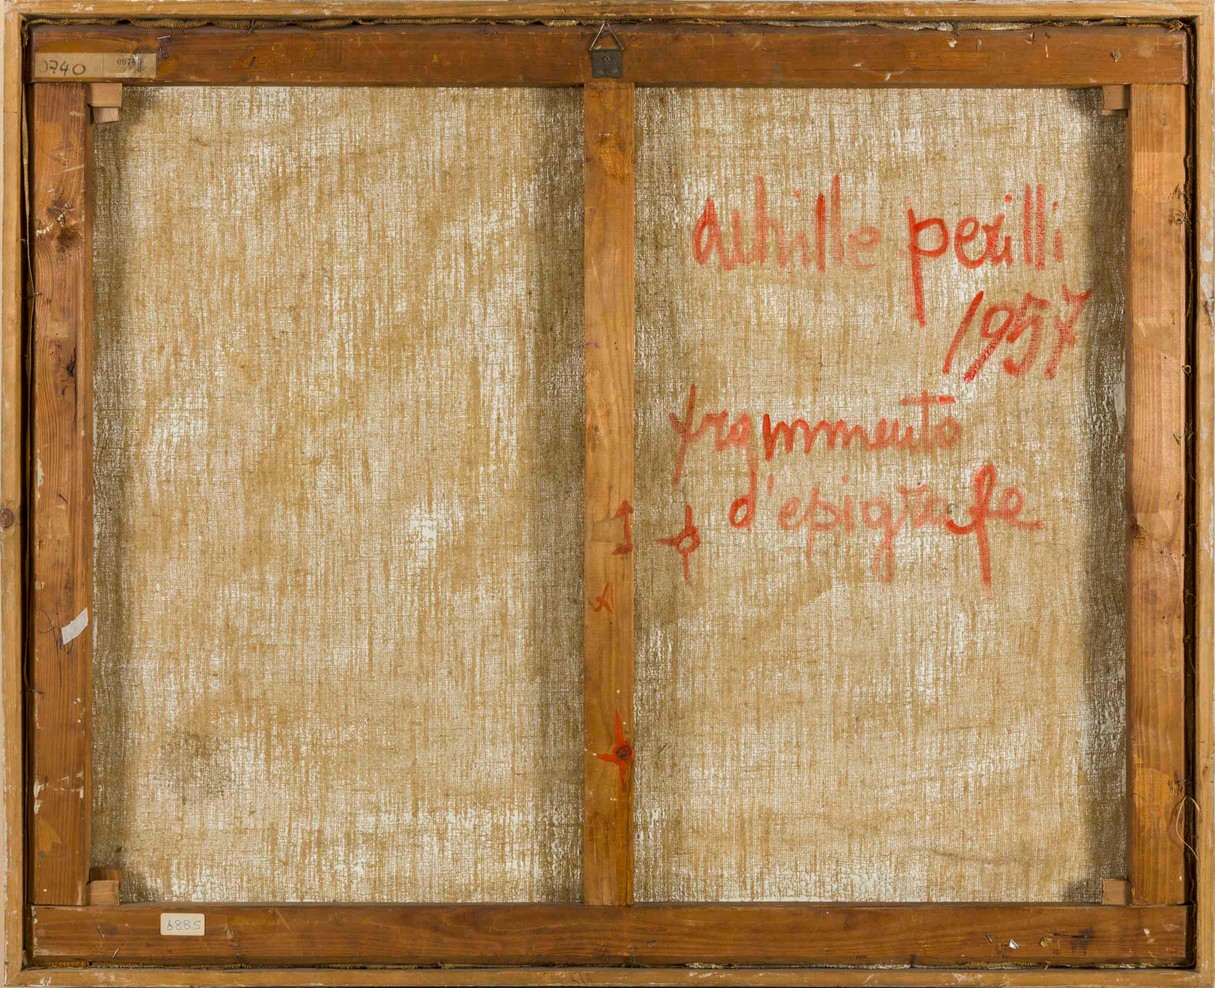 0740
achille perilli
1957
frammento
d'epigrafe